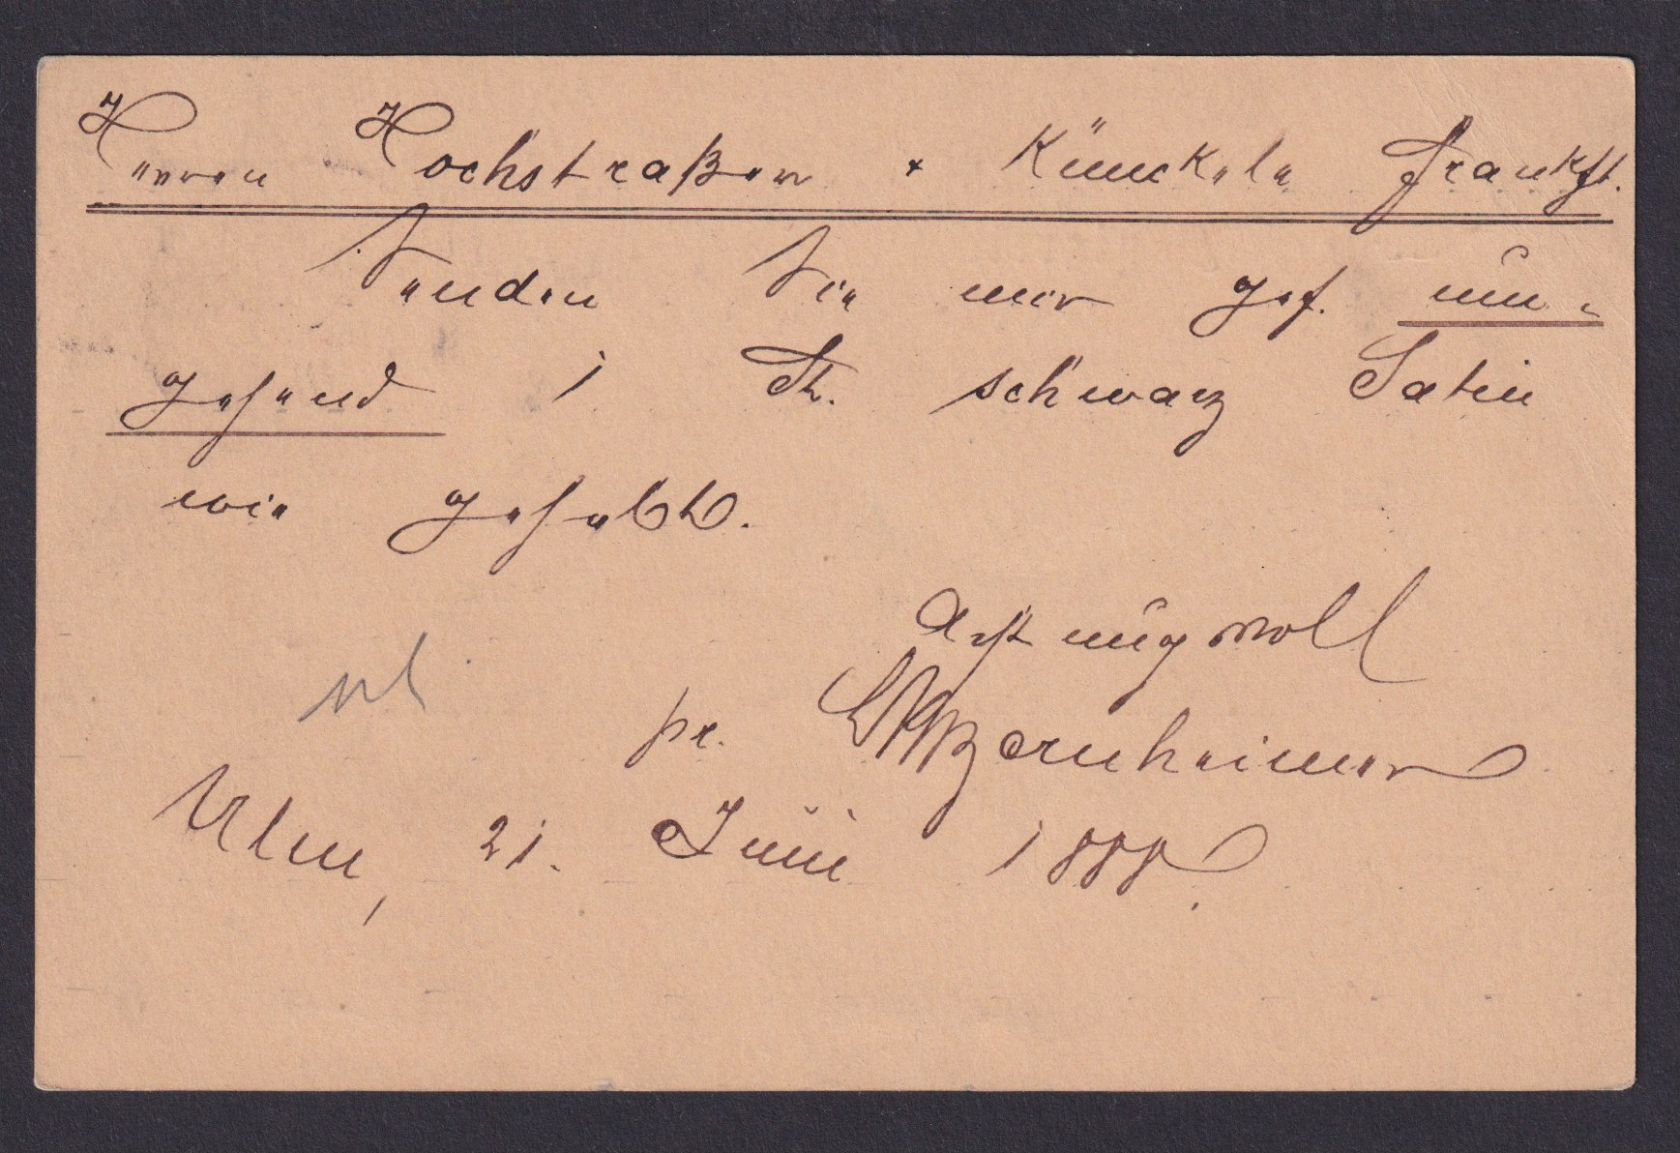 Herren Hochstraßer + Künckele Frankft.
Senden Sie mir gef. um-
gehend 1 St. schwarz Satin
wie gehabt.
Achtungsvoll
pr. Bernheimer
Ulm, 21. Juni 1888